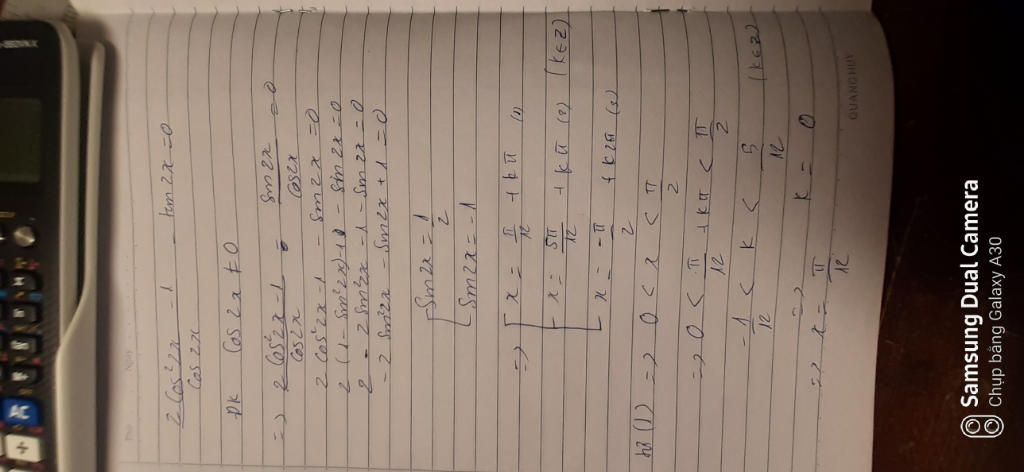 2cos²2x - 1 / cos2x - tan2x = 0
ĐK cos2x ≠ 0
=> 2cos²2x - 1 / cos2x = sin2x / cos2x = 0
2cos²2x - 1 - sin2x = 0
2(1 - sin²2x) - 1 - sin2x = 0
2 - 2sin²2x - 1 - sin2x = 0
-2sin²2x - sin2x + 1 = 0
[ sin2x = 1/2
[ sin2x = -1
=> [ x = π/12 + kπ (1)
[ x = 5π/12 + kπ (2) (k∈Z)
[ x = -π/2 + k2π (3)
(1) => 0 < x < π/2
=> 0 < π/12 + kπ < π/2
-1/12 < k < 5/12 (k∈Z)
=> k = 0
=> x = π/12
QUANG HUY
AC
÷
Samsung Dual Camera
Chụp bằng Galaxy A30